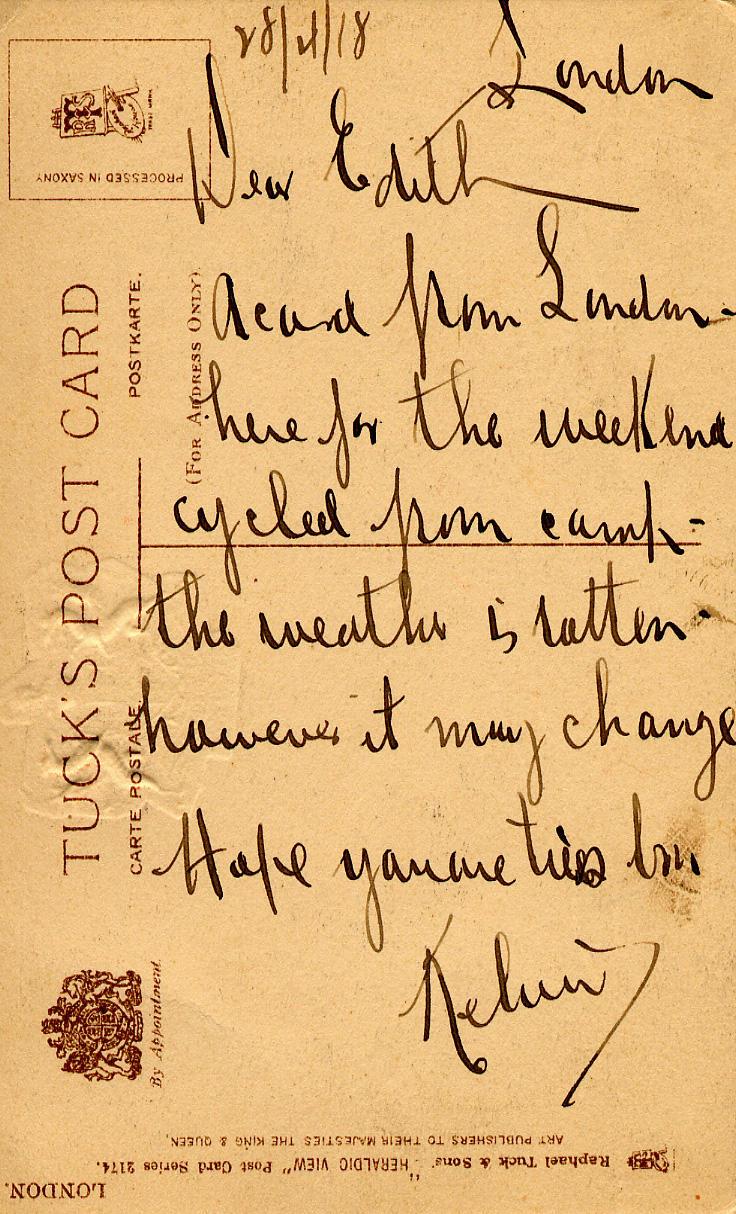 28/4/18
London
Dear Edith
A card from London -
here for the weekend
cycled from camp -
the weather is rotten -
however it may change
Hope you are
Kelvin
PROCESSED IN SAXONY
TRADE MARK
TUCK'S POST CARD
CARTE POSTALE.
POSTKARTE.
(FOR ADDRESS ONLY).
By Appointment.
Raphael Tuck & Sons' "HERALDIC VIEW" Post Card Series 2174.
ART PUBLISHERS TO THEIR MAJESTIES THE KING & QUEEN.
LONDON.